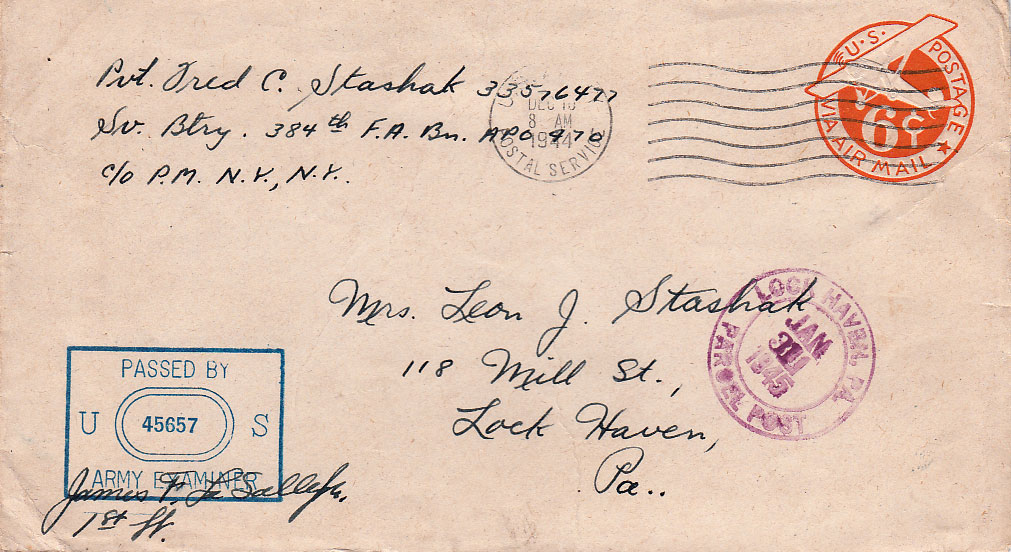 Pvt. Fred C. Stashak 33576477
Sv. Btry. 384th F.A. Bn. APO 970
c/o P.M. N.Y., N.Y.
DEC
8 AM
1944
POSTAL SERVICE
U.S. POSTAGE
6¢
VIA AIR MAIL
Mrs. Leon J. Stashak
118 Mill St.,
Lock Haven,
Pa..
LOCK HAVEN, PA.
JAN
1945
PARCEL POST
PASSED BY
U 45657 S
ARMY EXAMINER
James F.
1st Lt.